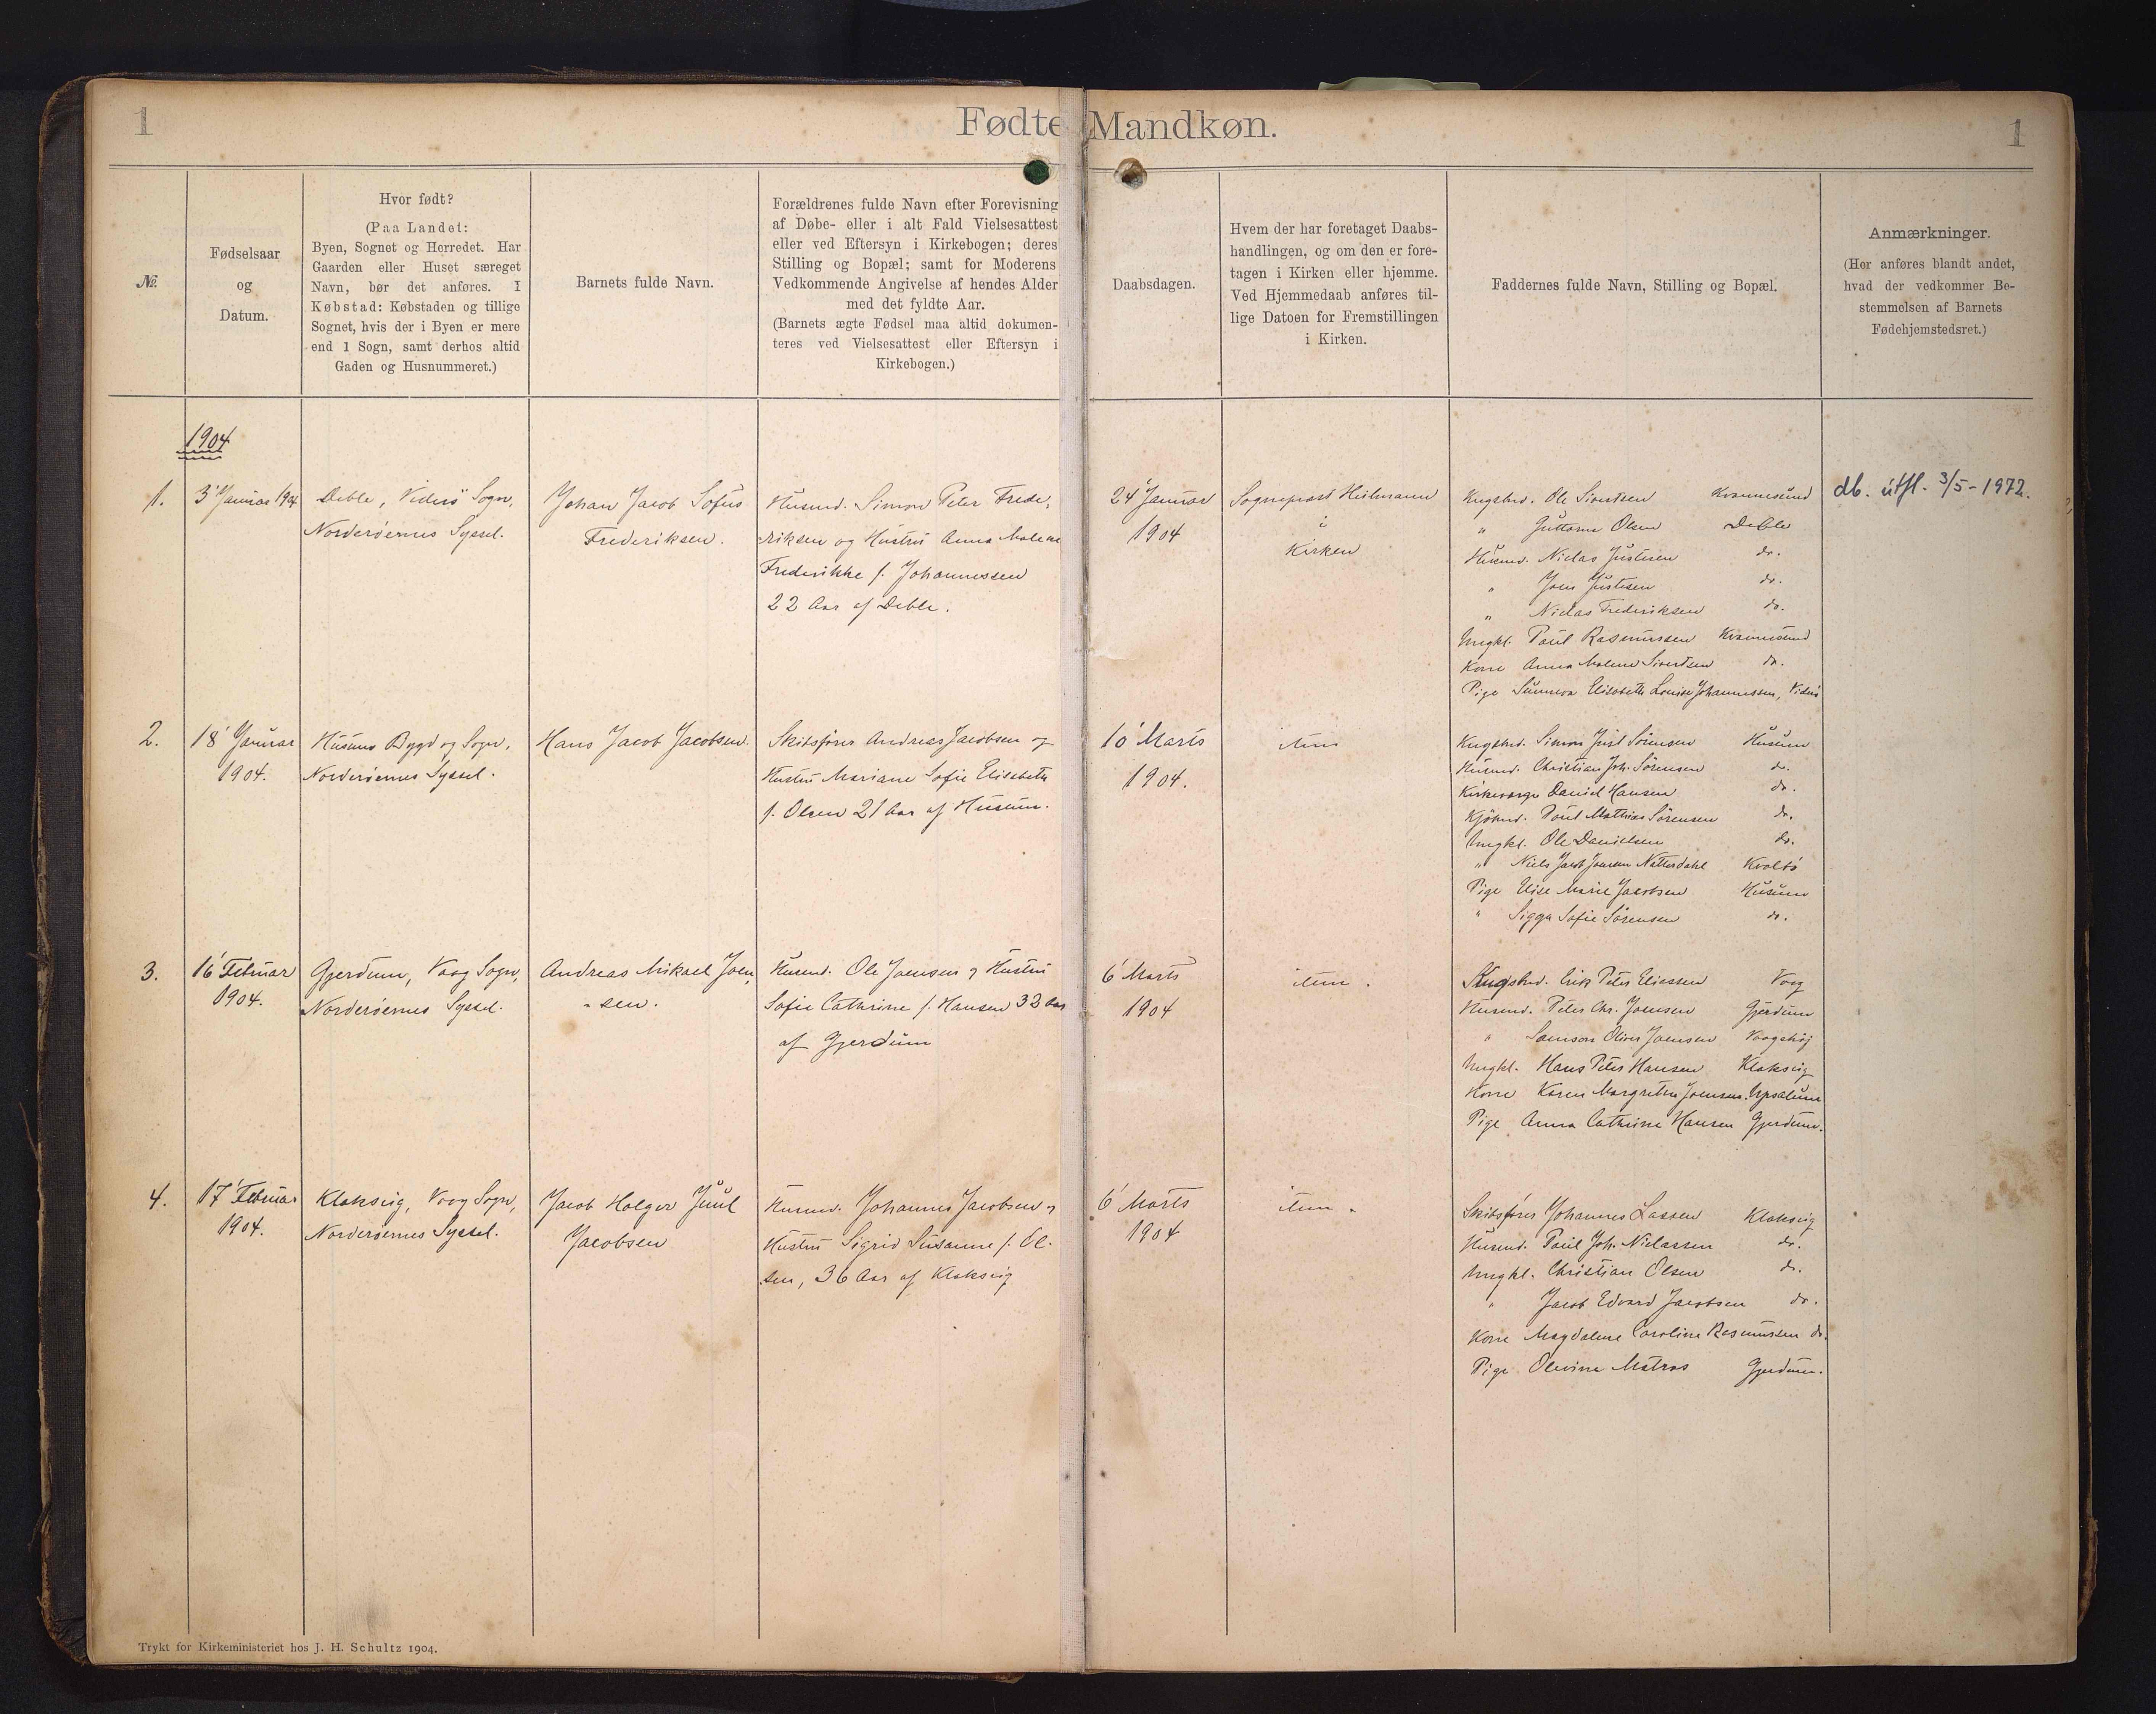 1
Fødte Mandkøn.
1
No.
Fødselsaar
og
Datum.
Hvor født?
(Paa Landet:
Byen, Sognet og Herredet. Har
Gaarden eller Huset særeget
Navn, bør det anføres. I
Købstad: Købstaden og tillige
Sognet, hvis der i Byen er mere
end 1 Sogn, samt derhos altid
Gaden og Husnummeret.)
Barnets fulde Navn.
Forældrenes fulde Navn efter Forevisning
af Døbe- eller i alt Fald Vielsesattest
eller ved Eftersyn i Kirkebogen; deres
Stilling og Bopæl; samt for Moderens
Vedkommende Angivelse af hendes Alder
med det fyldte Aar.
(Barnets ægte Fødsel maa altid dokumen-
teres ved Vielsesattest eller Eftersyn i
Kirkebogen.)
Daabsdagen.
Hvem der har foretaget Daabs-
handlingen, og om den er fore-
tagen i Kirken eller hjemme.
Ved Hjemmedaab anføres til-
lige Datoen for Fremstillingen
i Kirken.
Faddernes fulde Navn, Stilling og Bopæl.
Anmærkninger.
(Her anføres blandt andet,
hvad der vedkommer Be-
stemmelsen af Barnets
Fødehjemstedsret.)
1904
1.
3' Januar 1904
Deble, Viderö Sogn,
Norderöernes Syssel.
Johan Jacob Sofus
Frederiksen.
Husmd. Simon Peter Frede-
riksen og Hustru Anna Malene
Frederikke f. Johannessen
22 Aar af Deble.
24' Januar
1904
Sognepræst Heilmann
i
Kirken
Kngsbd. Ole Sivertsen Kvannesund
" Guttorm Olsen Deble
Husmd. Niclas Justesen do.
" Joen Justesen do.
" Niclas Frederiksen do.
Ungkl. Poul Rasmussen Kvannesund
Kone Anna Malene Sivertsen do.
Pige Sunneva Elisabeth Louise Johannessen, Viderö
db. útfl. 3/5-1972.
2.
18' Januar
1904.
Husums Bygd og Sogn,
Norderöernes Syssel.
Hans Jacob Jacobsen.
Skibsfører Andreas Jacobsen og
Hustru Mariane Sofie Elisabeth
f. Olsen 21 Aar af Husum.
10' Marts
1904.
item
Kngsbd. Simon Just Sörensen Husum
Husmd. Christian Joh. Sörensen do.
Kirkeværge Daniel Hansen do.
Kjöbmd. Poul Mathias Sörensen do.
Ungkl. Ole Danielsen do.
" Niels Jacob Joensen Nattestahl Kvaltö
Pige Elise Marie Jacobsen Husum
" Sigga Sofie Sörensen do.
3.
16' Februar
1904.
Gjerdum, Vaag Sogn,
Norderöernes Syssel.
Andreas Mikael Joen-
-sen.
Husmd. Ole Joensen og Hustru
Sofie Cathrine f. Hansen 32 Aar
af Gjerdum
6' Marts
1904
item.
Kngsbd. Erik Peter Eliassen Vaag
Husmd. Peter Chr. Joensen Gjerdum
" Samson Oliver Joensen Vaagshøj
Ungkl. Hans Peter Hansen Klaksvig
Kone Karen Margrethe Joensen Upsalum
Pige Anna Cathrine Hansen Gjerdum.
4.
17' Februar
1904.
Klaksvig, Vaag Sogn,
Norderöernes Syssel.
Jacob Holger Juul
Jacobsen
Husmd. Johannes Jacobsen og
Hustru Sigrid Susanne f. Ol-
sen, 36 Aar af Klaksvig
6' Marts
1904
item.
Skibsfører Johannes Lassen Klaksvig
Husmd. Poul Joh. Niclassen do.
Ungkl. Christian Olsen do.
" Jacob Edvard Jacobsen do.
Kone Magdalene Caroline Rasmussen do.
Pige Olevine Matras Gjerdum.
Trykt for Kirkeministeriet hos J. H. Schultz 1904.